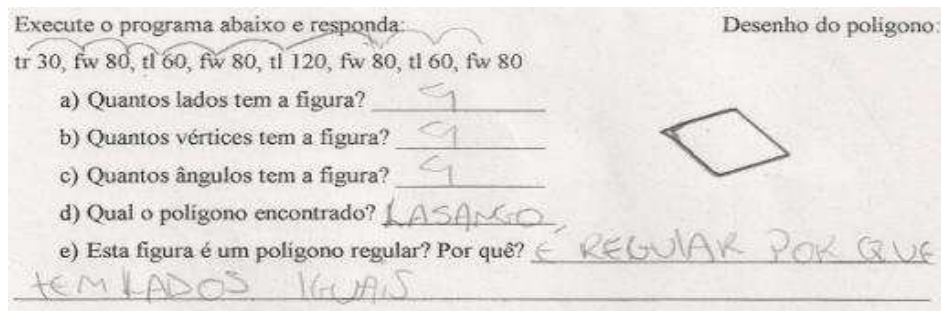 Execute o programa abaixo e responda: Desenho do poligono:
tr 30, fw 80, tl 60, fw 80, tl 120, fw 80, tl 60, fw 80
a) Quantos lados tem a figura? 4
b) Quantos vértices tem a figura? 4
c) Quantos ângulos tem a figura? 4
d) Qual o polígono encontrado? LASANGO
e) Esta figura é um polígono regular? Por quê? É REGULAR POR QUE
TEM LADOS IGUAIS